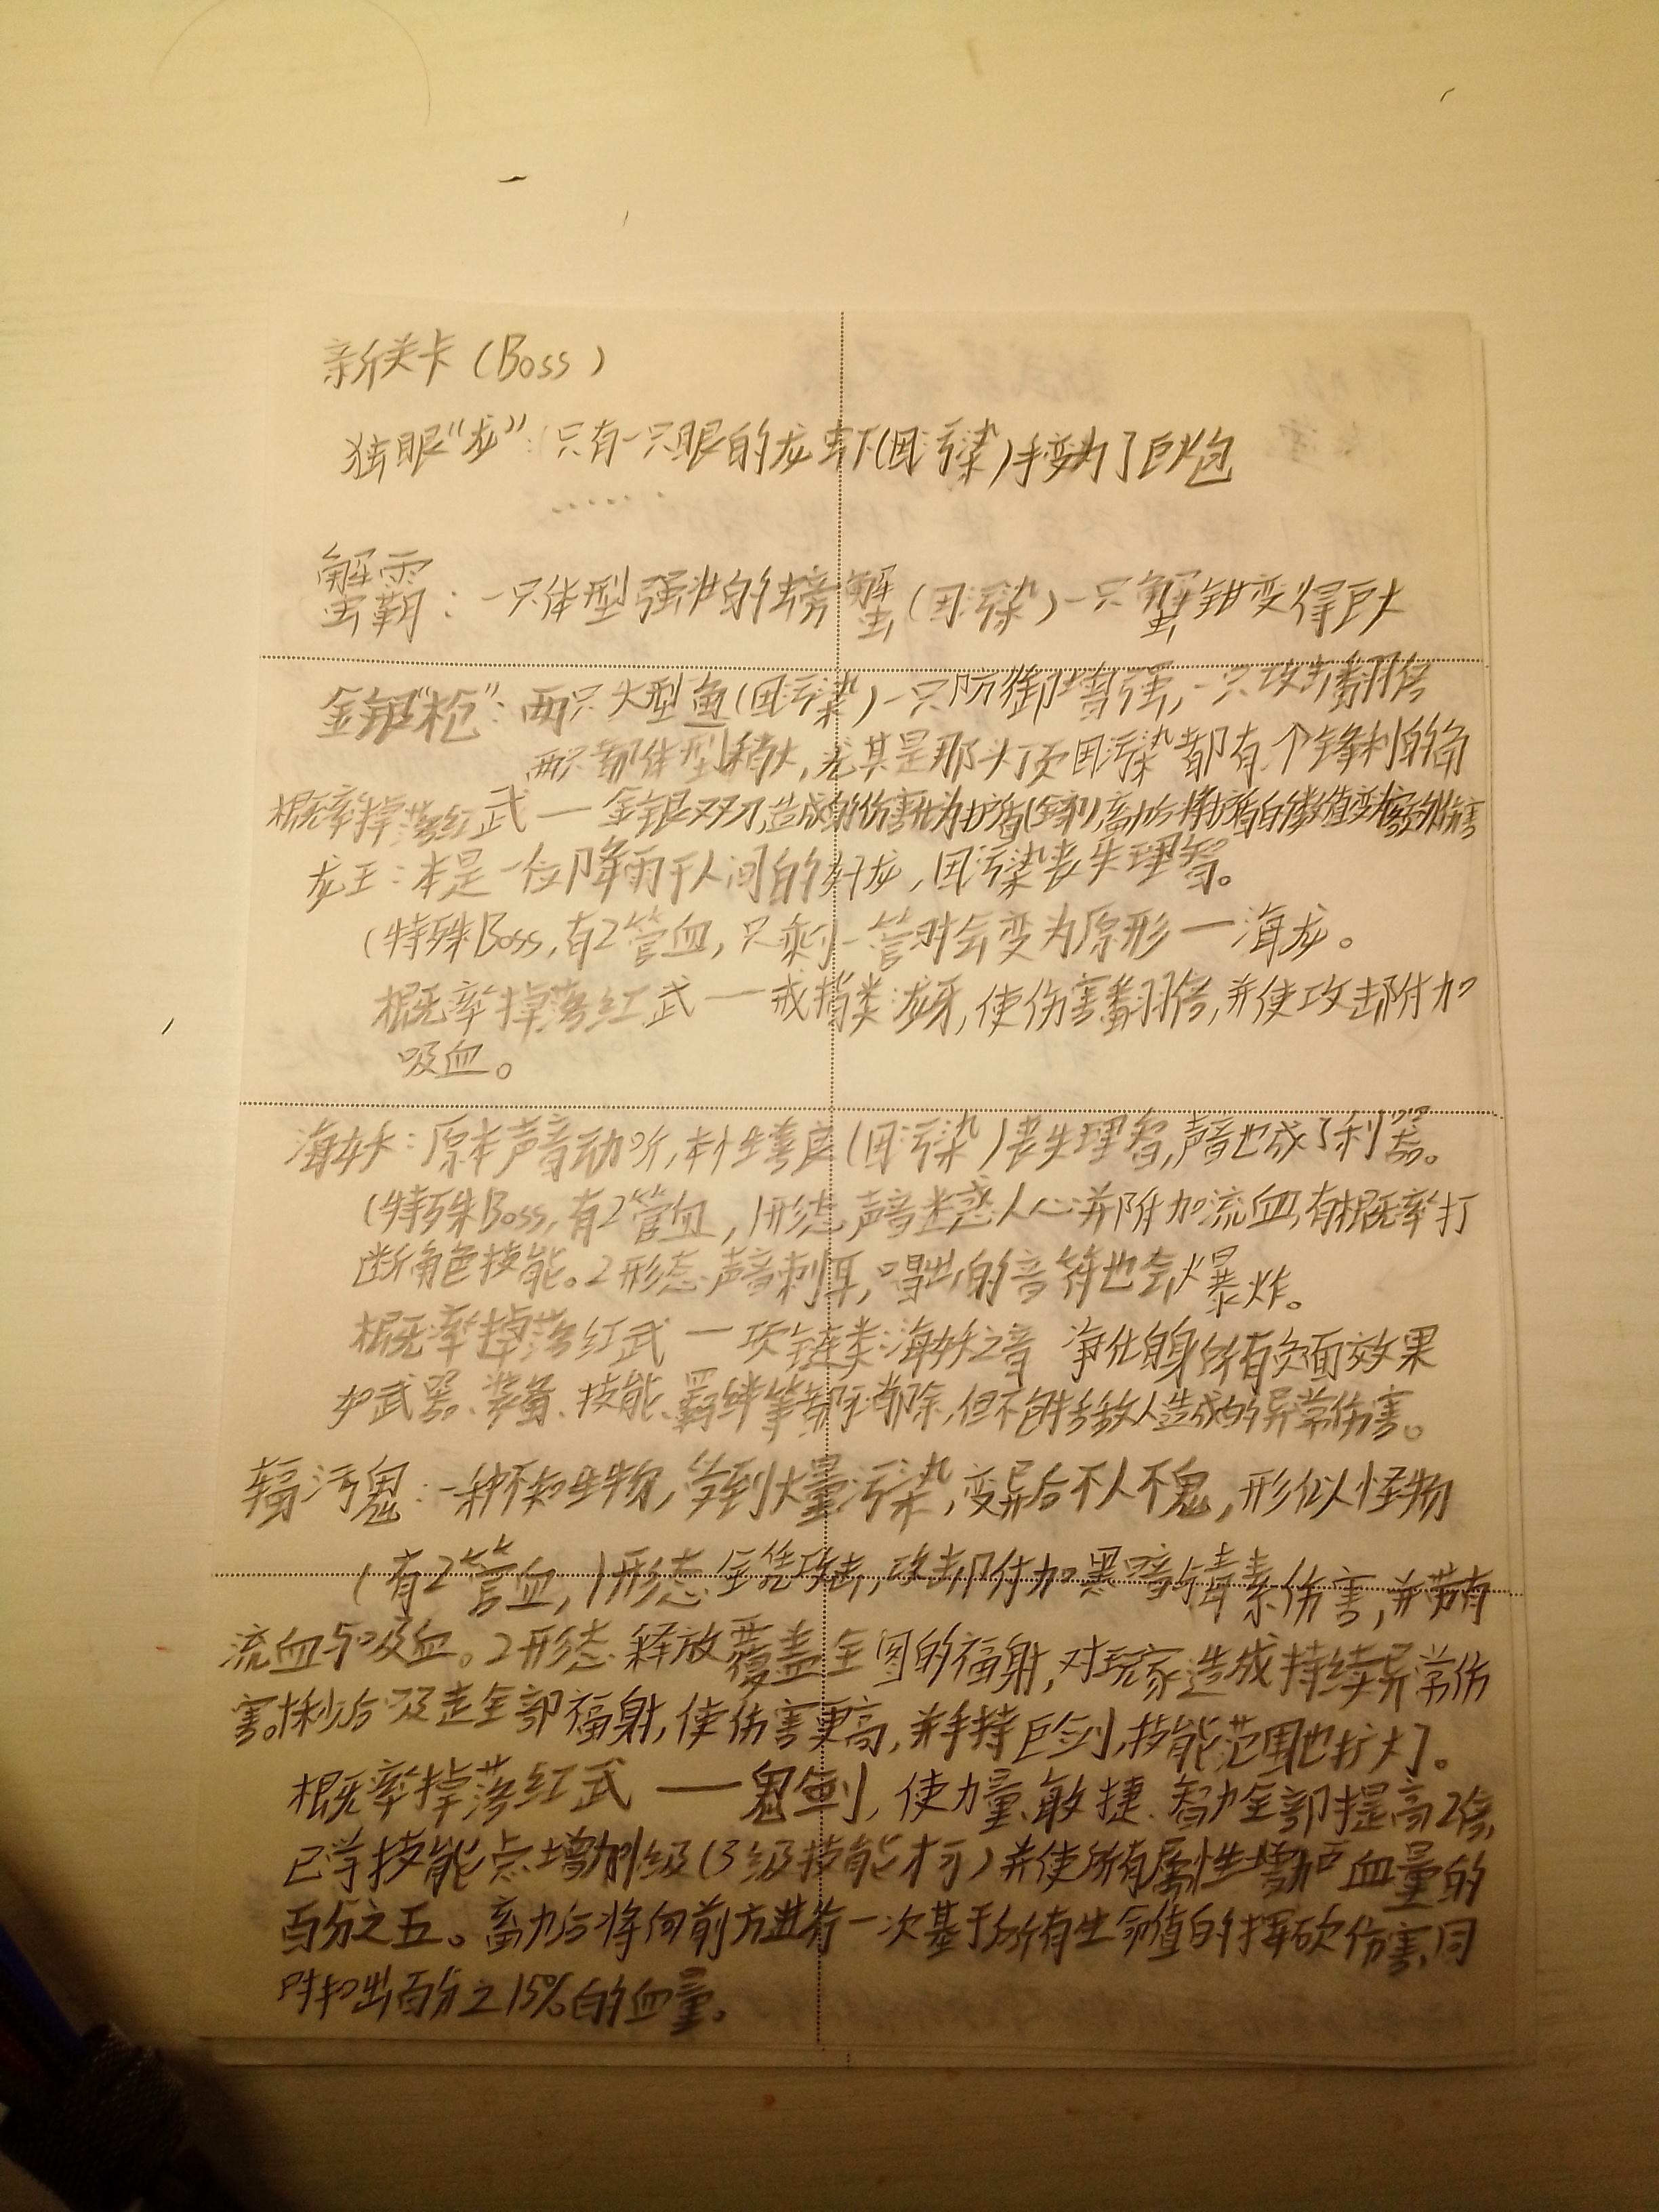 新关卡（Boss）
独眼“龙”：只有一只眼的龙虾（因污染）手变为了巨炮
……
蟹霸：一只体型强壮的螃蟹（因污染）一只蟹钳变得巨大
金银“枪”：两只大型鱼（因污染）一只防御增强，一只攻击翻倍
两只都体型稍大，尤其是那头顶因污染都有个锋利的角
概率掉落红武—金银双刃，造成的伤害化为护盾，蓄力后将护盾的数值变为额外伤害
龙王：本是一位降雨于人间的好龙，因污染丧失理智。
（特殊Boss，有2管血，只剩一管时会变为原形—海龙。
概率掉落红武—戒指类龙牙，使伤害翻倍，并使攻击附加
吸血。
海妖：原本声音动听，本性善良（因污染）丧失理智，声音也成了利器。
（特殊Boss，有2管血，1形态声音迷惑人心并附加流血，有概率打
断角色技能。2形态声音刺耳，唱出的音符也会爆炸。
概率掉落红武—项链类海妖之音 净化自身所有负面效果
如武器、装备、技能、羁绊等都可消除，但不包括敌人造成的异常伤害。
辐污鬼：一种不知生物，受到大量污染，变异后不人不鬼，形似怪物
（有2管血，1形态全凭攻击，攻击附加黑暗毒素伤害，并带有
流血与吸血。2形态释放覆盖全图的辐射，对玩家造成持续异常伤
害。10秒后吸走全部辐射，使伤害更高，并手持巨剑，技能范围也扩大了。
概率掉落红武——鬼剑，使力量、敏捷、智力全部提高2倍，
已学技能点增加1级（3级技能才可）并使所有属性增加血量的
百分之五。蓄力后将向前方进行一次基于所有生命值的挥砍伤害，同
时扣出百分之15%的血量。